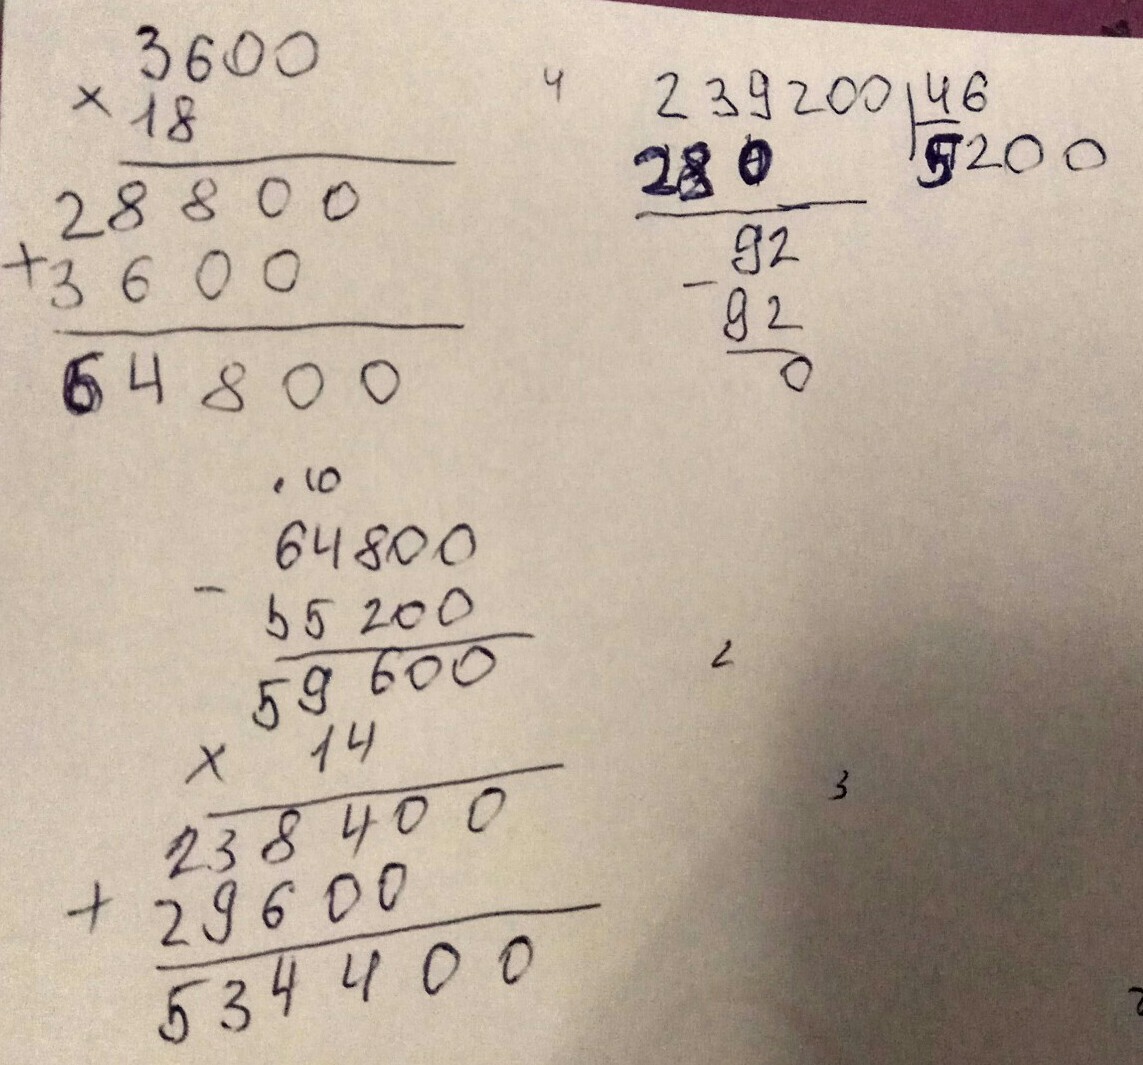 3600
× 18
28800
+ 3600
64800
4
239200 | 46
230 5200
92
- 92
0
. 10
64800
- 55200
59600
× 14
238400
+ 29600
534400
2
3